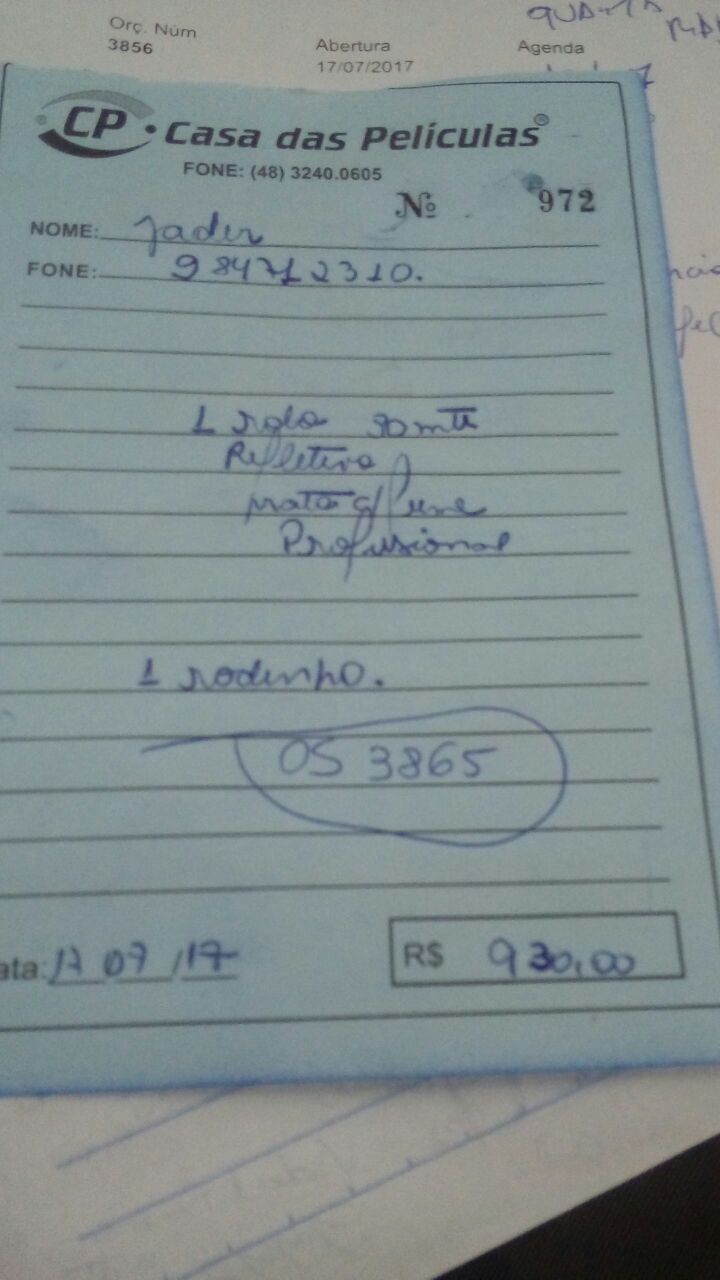 Orç. Núm
3856
Abertura
17/07/2017
Agenda
CP
Casa das Películas®
FONE: (48) 3240.0605
Nº 972
NOME: Jader
FONE: 984712310.
1 rolo mts
Refletivo
prata c/
Profissional
1 rodinho.
OS 3865
ata: 17 07 / 17
R$ 930,00